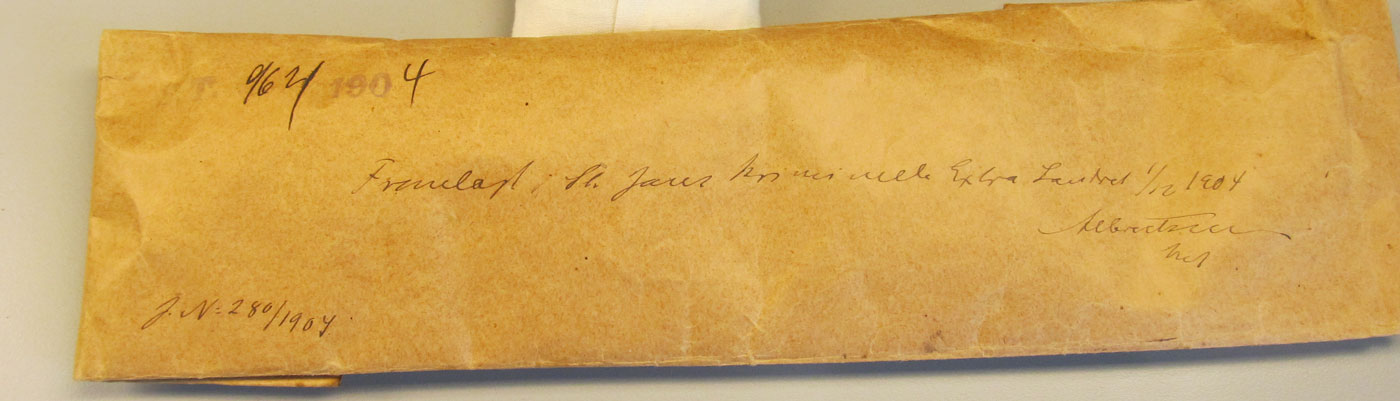 T. 962/ 1904
Fremlagt i St. Jans Kriminelle Extra Landret 1/12 1904
Albrectsen
J. No. 280/1904